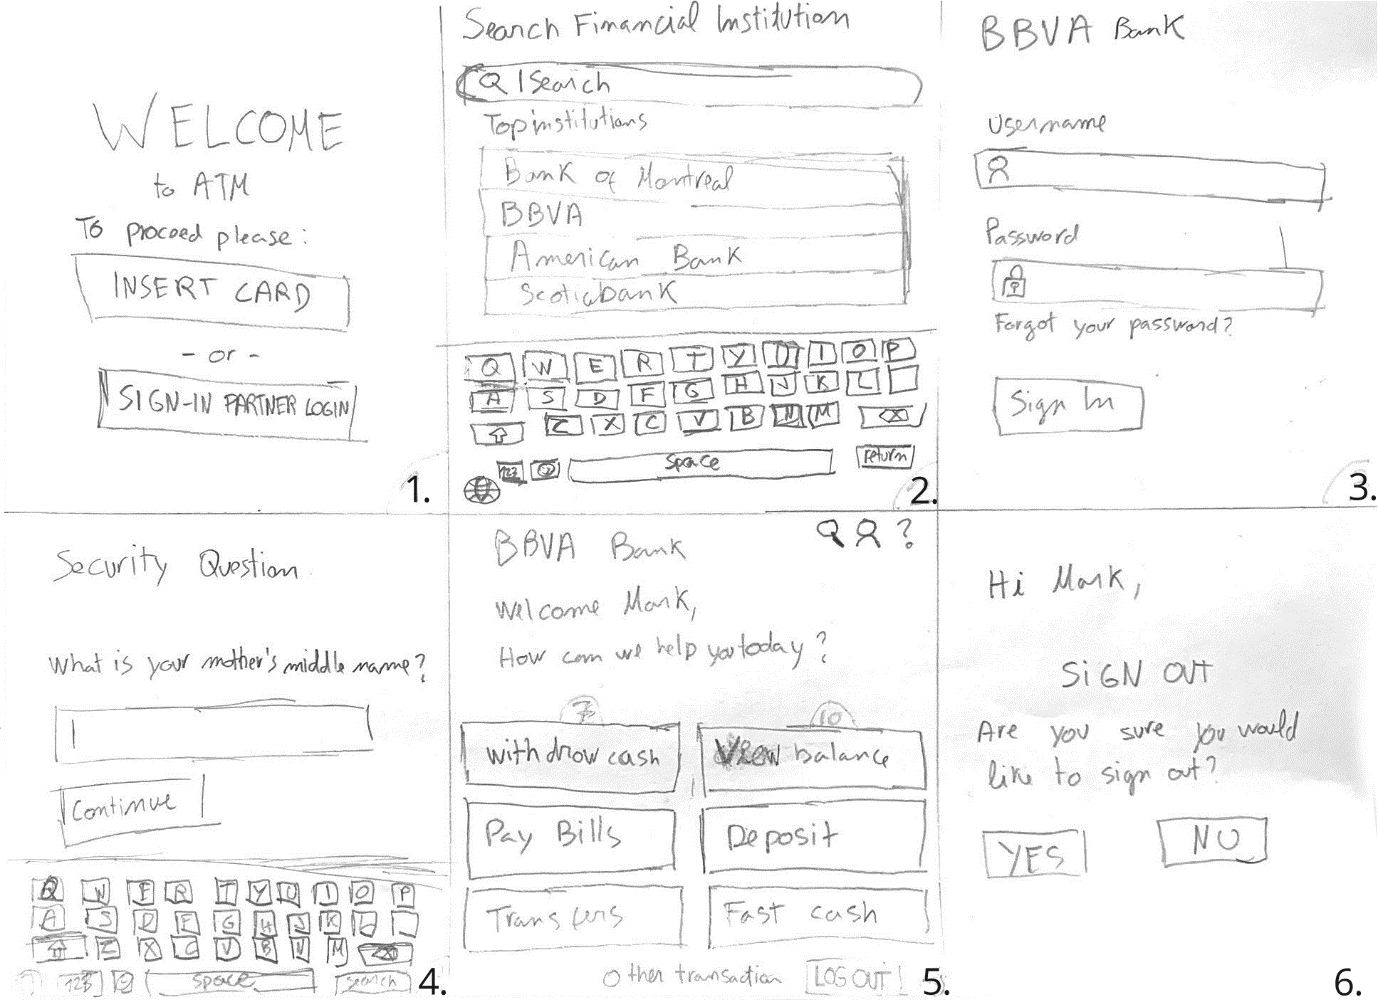 WELCOME
to ATM
To proceed please:
INSERT CARD
- or -
SIGN-IN PARTNER LOGIN
1.
Search Financial Institution
Search
Top institutions
Bank of Montreal
BBVA
American Bank
Scotiabank
Q W E R T Y U I O P
A S D F G H J K L
Z X C V B N M
123 @ space return
2.
BBVA Bank
Username
Password
Forgot your password?
Sign In
3.
Security Question
What is your mother's middle name?
Continue
Q W E R T Y U I O P
A S D F G H J K L
Z X C V B N M
123 space search
4.
BBVA Bank ?
Welcome Mark,
How can we help you today?
7 10
Withdrow cash View balance
Pay Bills Deposit
Transfers Fast cash
Other transaction LOG OUT
5.
Hi Mark,
SiGN OUT
Are you sure you would
like to sign out?
YES NO
6.